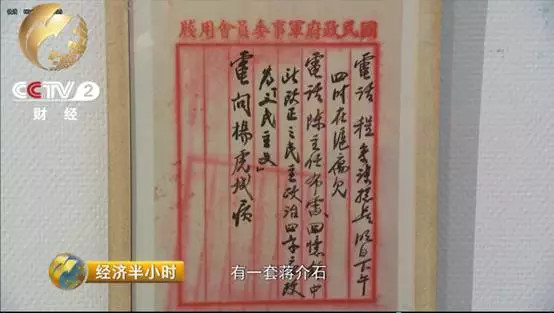 CCTV 2
财经
國民政府軍事委員會用牋
電話程參謀總長明日下午
四時在
電話陳主任布雷回憶錄中
此改正之民主政治四字改
為民主
電問楊虎城病
经济半小时
有一套蒋介石